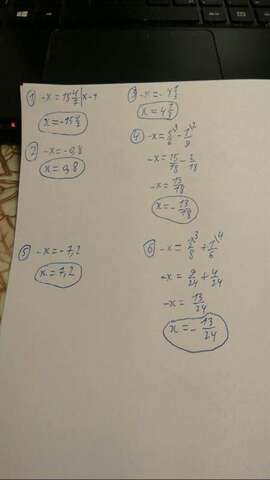 ① -x = 15 4/7 |x-1
x = -15 4/7
② -x = -0,8
x = 0,8
③ -x = -4 1/8
x = 4 1/8
④ -x = 5/6 \3 - 1/9 \2
-x = 15/18 - 2/18
-x = 13/18
x = - 13/18
⑤ -x = -7,2
x = 7,2
⑥ -x = 3/8 \3 + 1/6 \4
-x = 9/24 + 4/24
-x = 13/24
x = - 13/24